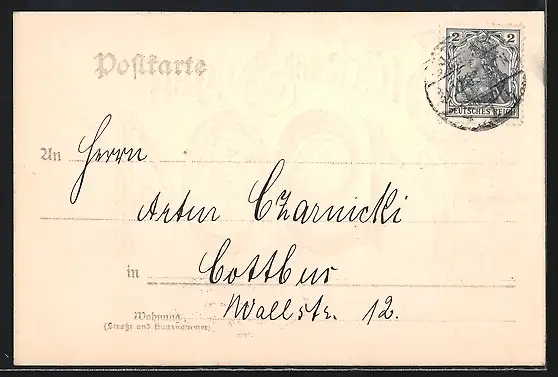 Postkarte
2 2
DEUTSCHES REICH
An Herrn
Artur Czarnicki
in Cottbus
Wallstr. 12.
Wohnung
(Straße und Hausnummer)